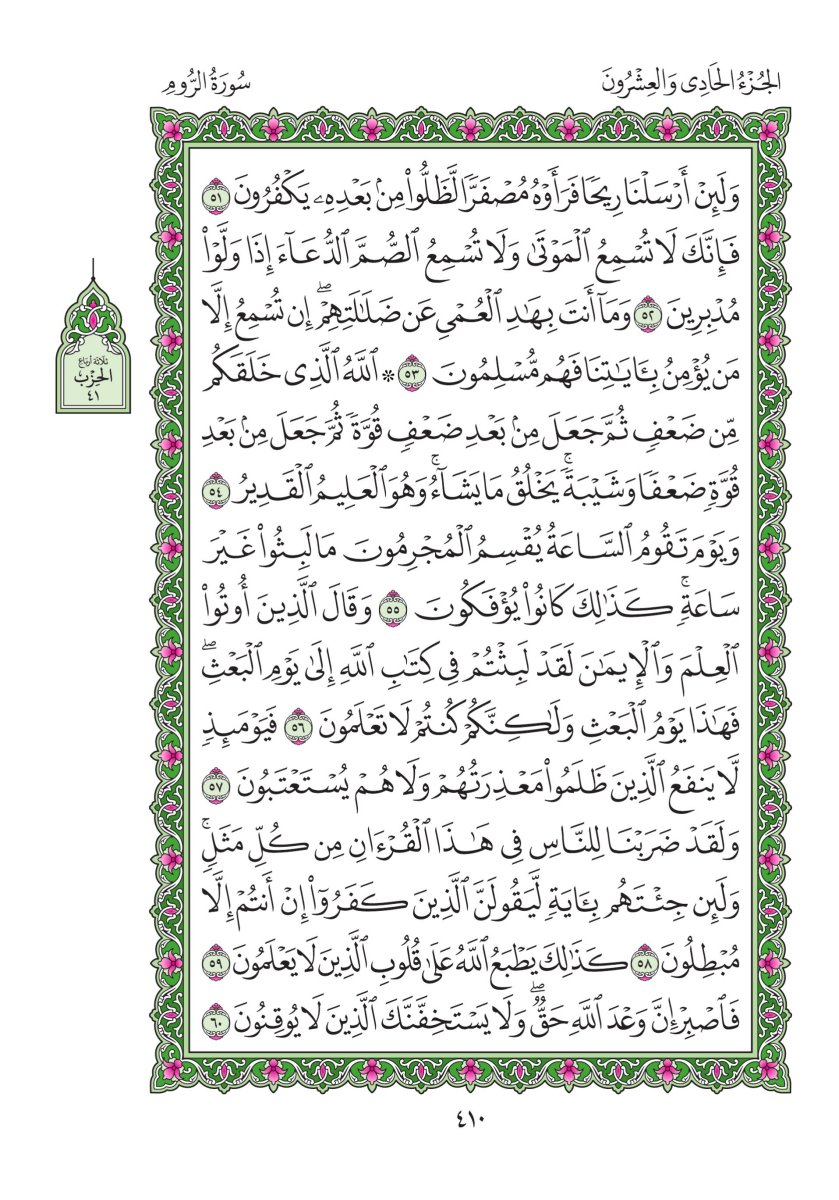 الجُزْءُ الحَادِى وَالعِشْرُونَ
سُورَةُ الرُّومِ
وَلَئِنْ أَرْسَلْنَا رِيحًا فَرَأَوْهُ مُصْفَرًّا لَّظَلُّوا۟ مِنۢ بَعْدِهِۦ يَكْفُرُونَ ٥١
فَإِنَّكَ لَا تُسْمِعُ ٱلْمَوْتَىٰ وَلَا تُسْمِعُ ٱلصُّمَّ ٱلدُّعَآءَ إِذَا وَلَّوْا۟
مُدْبِرِينَ ٥٢ وَمَآ أَنتَ بِهَٰدِ ٱلْعُمْىِ عَن ضَلَٰلَتِهِمْ ۖ إِن تُسْمِعُ إِلَّا
مَن يُؤْمِنُ بِـَٔايَٰتِنَا فَهُم مُّسْلِمُونَ ٥٣ * ٱللَّهُ ٱلَّذِى خَلَقَكُم
مِّن ضَعْفٍ ثُمَّ جَعَلَ مِنۢ بَعْدِ ضَعْفٍ قُوَّةً ثُمَّ جَعَلَ مِنۢ بَعْدِ
قُوَّةٍ ضَعْفًا وَشَيْبَةً ۚ يَخْلُقُ مَا يَشَآءُ ۚ وَهُوَ ٱلْعَلِيمُ ٱلْقَدِيرُ ٥٤
وَيَوْمَ تَقُومُ ٱلسَّاعَةُ يُقْسِمُ ٱلْمُجْرِمُونَ مَا لَبِثُوا۟ غَيْرَ
سَاعَةٍ ۚ كَذَٰلِكَ كَانُوا۟ يُؤْفَكُونَ ٥٥ وَقَالَ ٱلَّذِينَ أُوتُوا۟
ٱلْعِلْمَ وَٱلْإِيمَٰنَ لَقَدْ لَبِثْتُمْ فِى كِتَٰبِ ٱللَّهِ إِلَىٰ يَوْمِ ٱلْبَعْثِ ۖ
فَهَٰذَا يَوْمُ ٱلْبَعْثِ وَلَٰكِنَّكُمْ كُنتُمْ لَا تَعْلَمُونَ ٥٦ فَيَوْمَئِذٍ
لَّا يَنفَعُ ٱلَّذِينَ ظَلَمُوا۟ مَعْذِرَتُهُمْ وَلَا هُمْ يُسْتَعْتَبُونَ ٥٧
وَلَقَدْ ضَرَبْنَا لِلنَّاسِ فِى هَٰذَا ٱلْقُرْءَانِ مِن كُلِّ مَثَلٍ ۚ
وَلَئِن جِئْتَهُم بِـَٔايَةٍ لَّيَقُولَنَّ ٱلَّذِينَ كَفَرُوٓا۟ إِنْ أَنتُمْ إِلَّا
مُبْطِلُونَ ٥٨ كَذَٰلِكَ يَطْبَعُ ٱللَّهُ عَلَىٰ قُلُوبِ ٱلَّذِينَ لَا يَعْلَمُونَ ٥٩
فَٱصْبِرْ إِنَّ وَعْدَ ٱللَّهِ حَقٌّ ۖ وَلَا يَسْتَخِفَّنَّكَ ٱلَّذِينَ لَا يُوقِنُونَ ٦٠
ثلاثة أرباع
الحِزْب
٤١
٤١٠